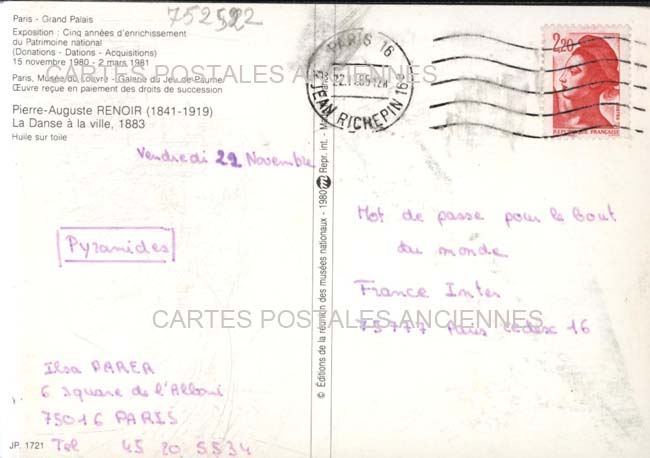 752522
Paris - Grand Palais
Exposition : Cinq années d'enrichissement
du Patrimoine national
(Donations - Dations - Acquisitions)
15 novembre 1980 - 2 mars 1981
Paris, Musée du Louvre - Galerie du Jeu de Paume
Œuvre reçue en paiement des droits de succession
Pierre-Auguste RENOIR (1841-1919)
La Danse à la ville, 1883
Huile sur toile
Vendredi 22 Novembre
Pyramides
Ilsa PARER
6 Square de l'Alboni
75016 PARIS
Tel 45 20 5534
JP. 1721
© Éditions de la réunion des musées nationaux - 1980 Repr. int.
PARIS 16
JEAN RICHEPIN 16e
2,20
REPUBLIQUE FRANÇAISE
Mot de passe pour le Bout
du monde
France Inter
75777 Paris cedex 16
CARTES POSTALES ANCIENNES
CARTES POSTALES ANCIENNES